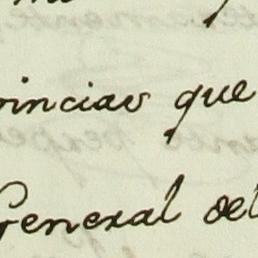 vincias que
General del